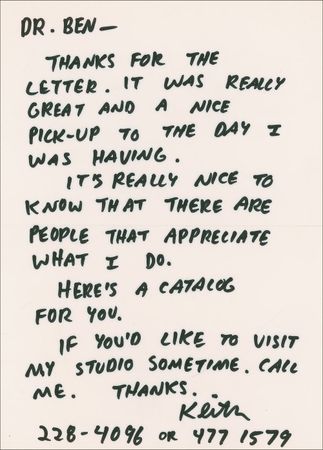 DR. BEN—
THANKS FOR THE
LETTER. IT WAS REALLY
GREAT AND A NICE
PICK-UP TO THE DAY I
WAS HAVING.
IT'S REALLY NICE TO
KNOW THAT THERE ARE
PEOPLE THAT APPRECIATE
WHAT I DO.
HERE'S A CATALOG
FOR YOU.
IF YOU'D LIKE TO VISIT
MY STUDIO SOMETIME. CALL
ME. THANKS.
Keith
228-4096 OR 477 1579